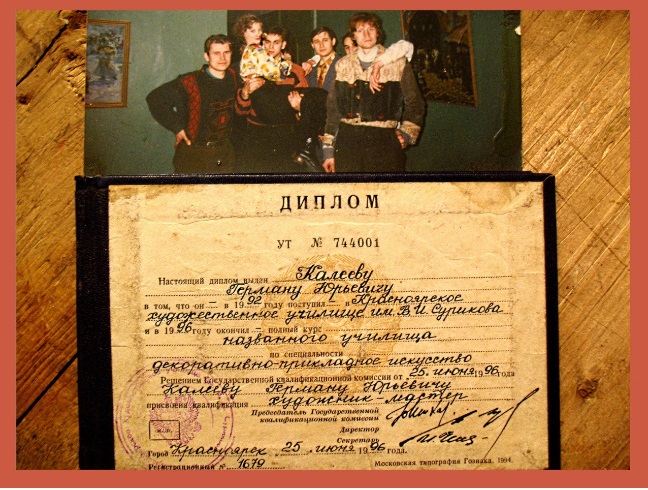 ДИПЛОМ
УТ № 744001
Настоящий диплом выдан Калееву
Герману Юрьевичу
в том, что он — в 1992 году поступил — в Красноярское
художественное училище им. В.И. Сурикова
и в 1996 году окончил — полный курс
названного училища
по специальности
декоративно-прикладное искусство
Решением Государственной квалификационной комиссии от 25 июня 1996 года
Калееву Герману Юрьевичу
присвоена квалификация художник-мастер
Председатель Государственной
квалификационной комиссии
Директор
Секретарь
Город Красноярск, 25 июня 1996 г.
Регистрационный № 1679
Московская типография Гознака. 1994.